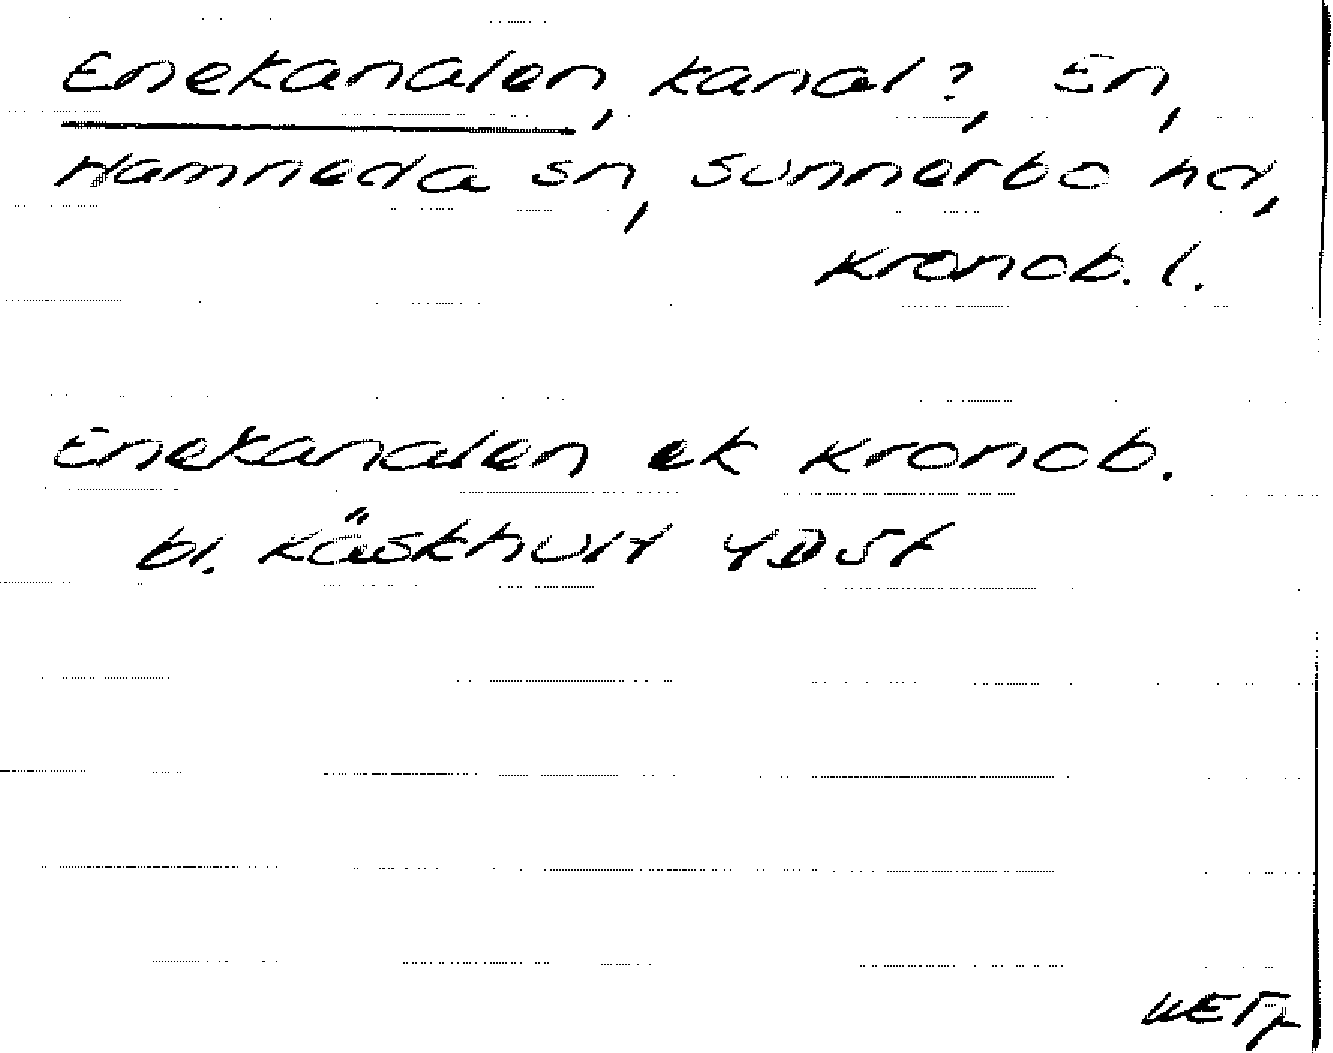 Enekanalen, kanal?, En,
Hamneda sn, Sunnerbo hd,
Kronob. l.
Enekanalen ek Kronob.
bl. Käskhult 4D5f